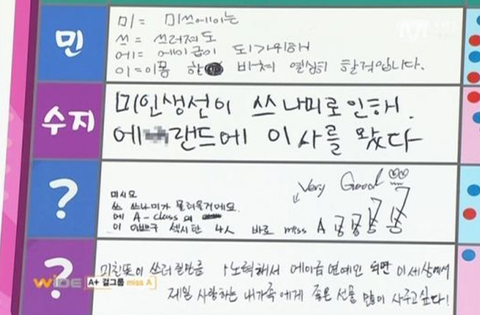 민
미 = 미쓰에이는
쓰 = 쓰러져도
에 = 에이급이 되기위해
이 = 이몸 바쳐 열심히 할것입니다.
수지
미인생선이 쓰나미로인해.
에 랜드에 이사를 왔다
?
Very Good
미시오
쓰 쓰나미가 몰려올거에요.
에 A-class 의
이 이쁘구 섹시한 4人 바로 miss A 쿵쿵쿵 쿵
?
미친듯이 쓰러질만큼 노력해서 에이급연예인 되면 이세상에서
제일 사랑하는 내가족에게 좋은 선물 많이 사주고싶다!
WIDE A+ 걸그룹 miss A